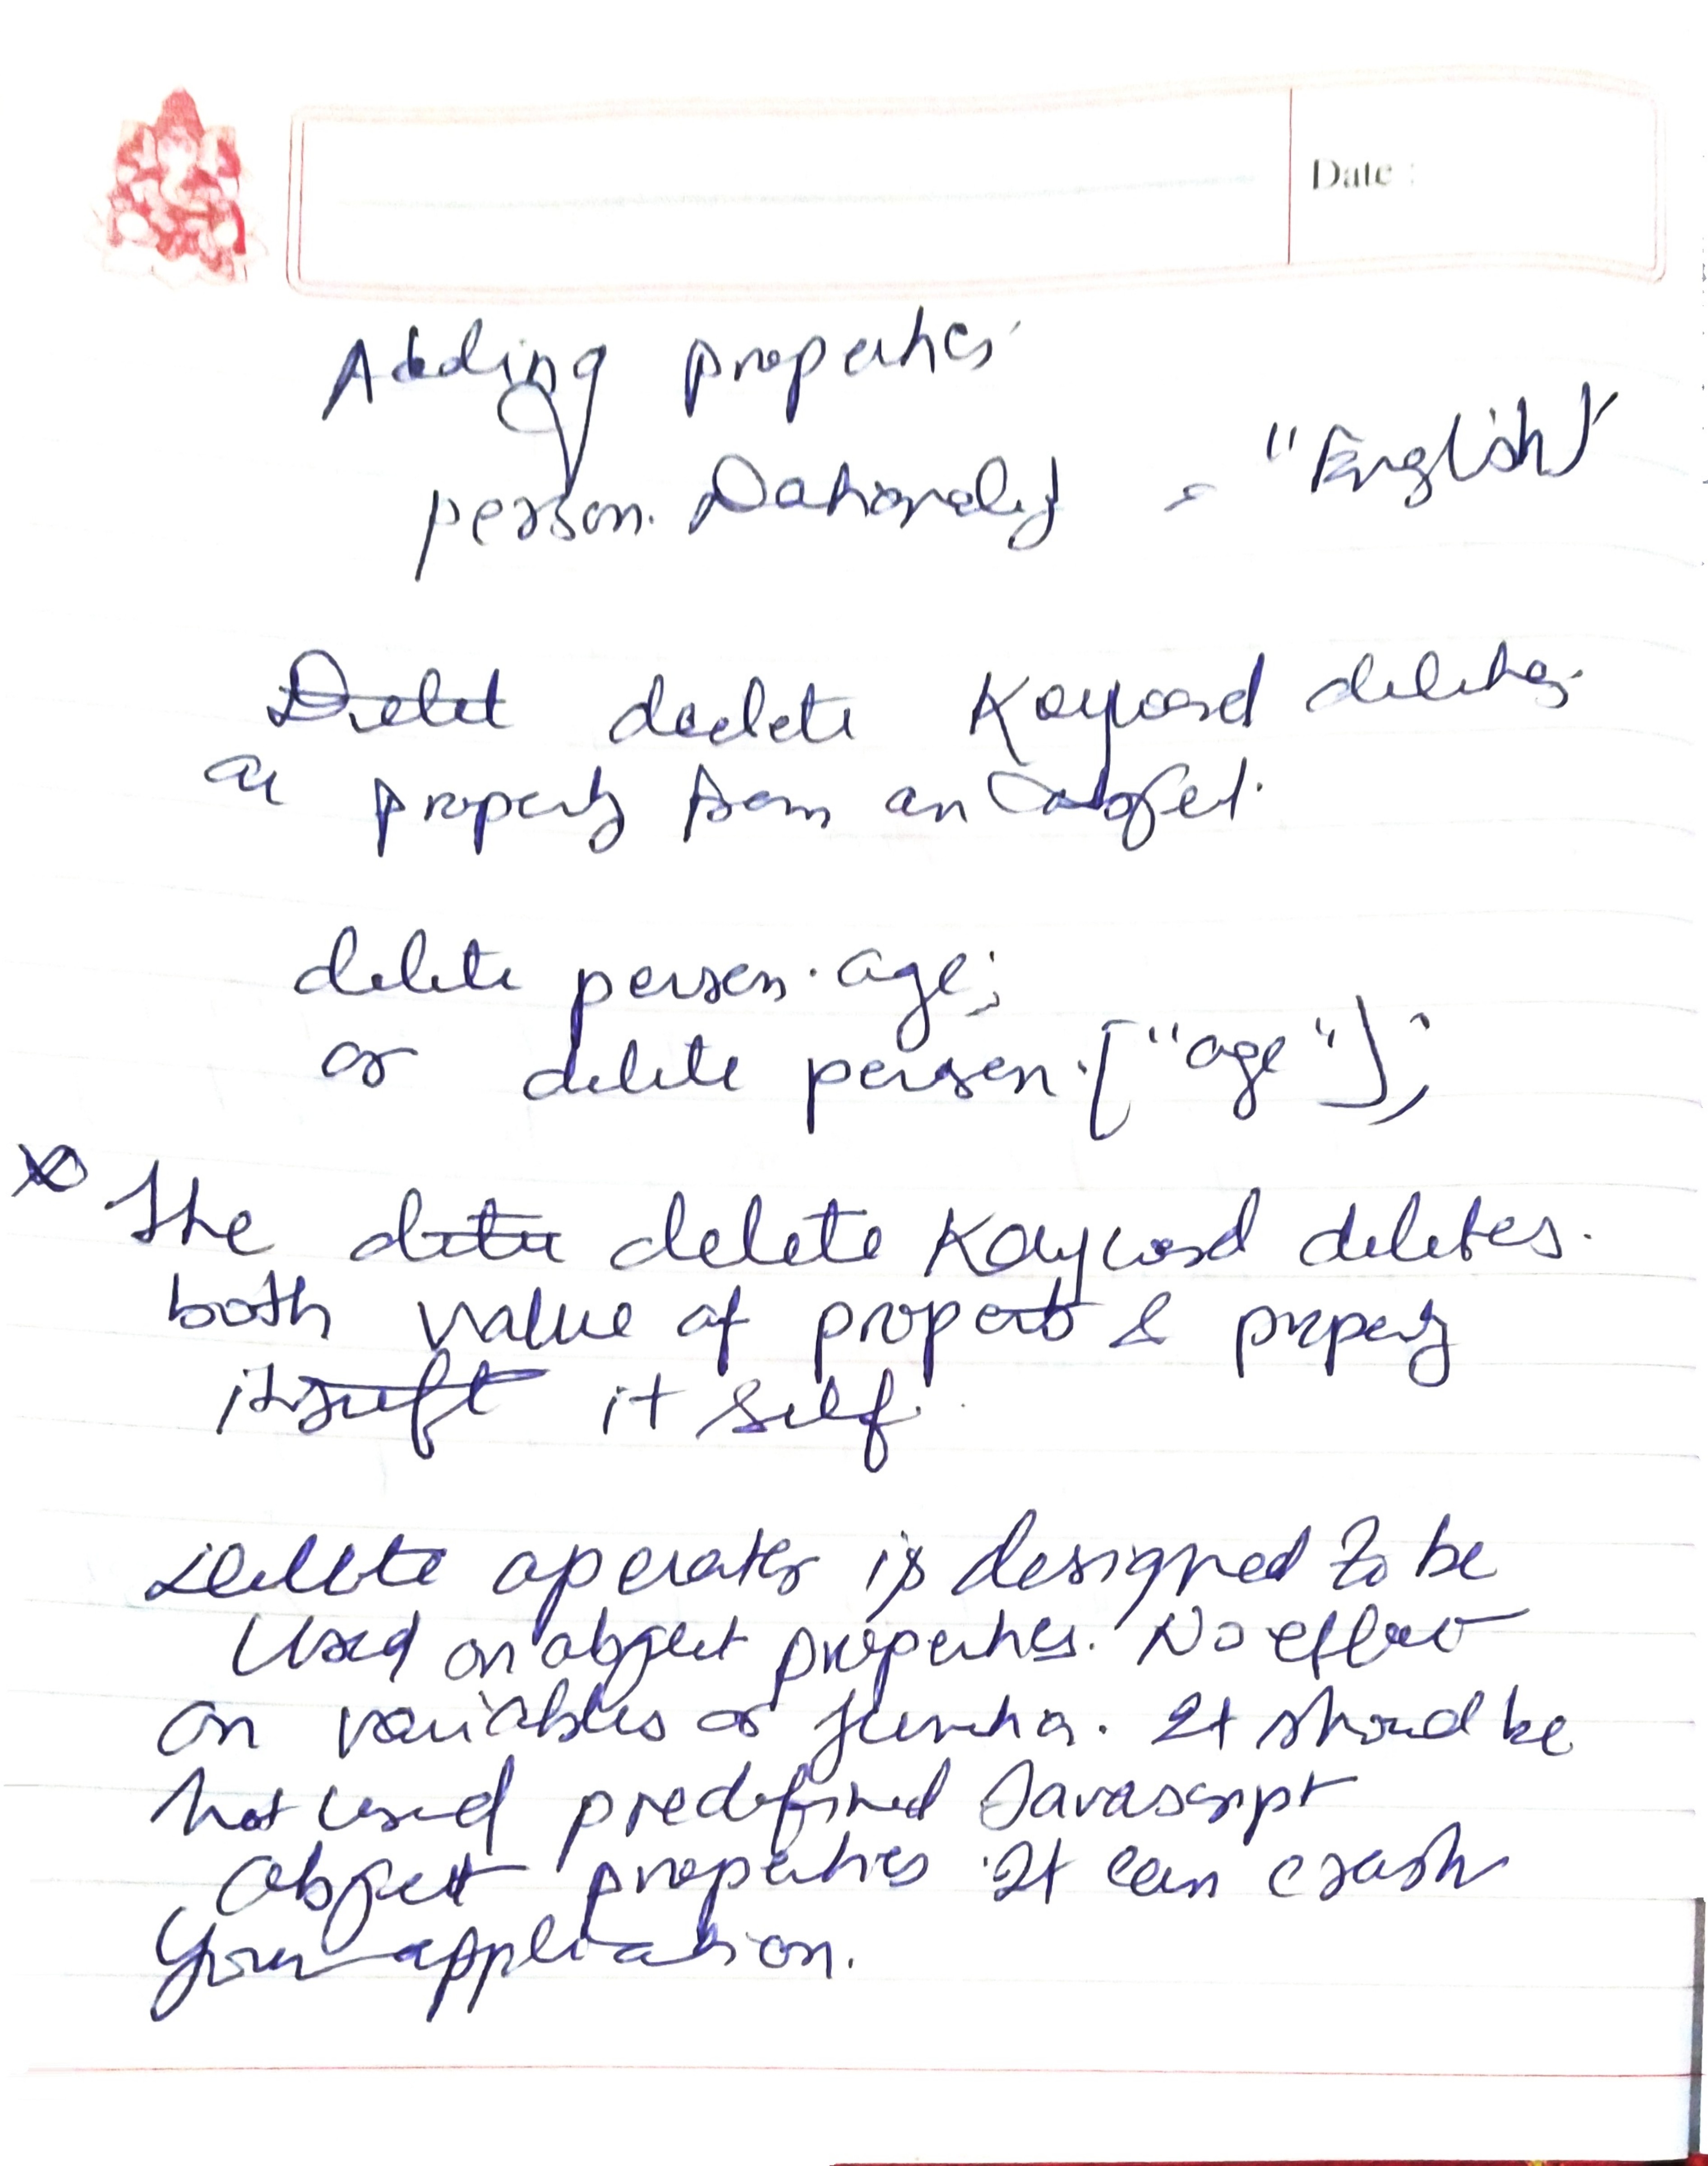 Date :
Adding properties
person. Nationality = "English"
Delet delete Keyword deletes
a property from an object.
delete person.age;
or delete person.["age"];
The delete Keyword deletes.
both value of property & property
itself it self.
Delete operator is designed to be
Used on object properties. No effect
on variables or function. It should be
not used predefined Javascript
object properties. It can crash
your application.